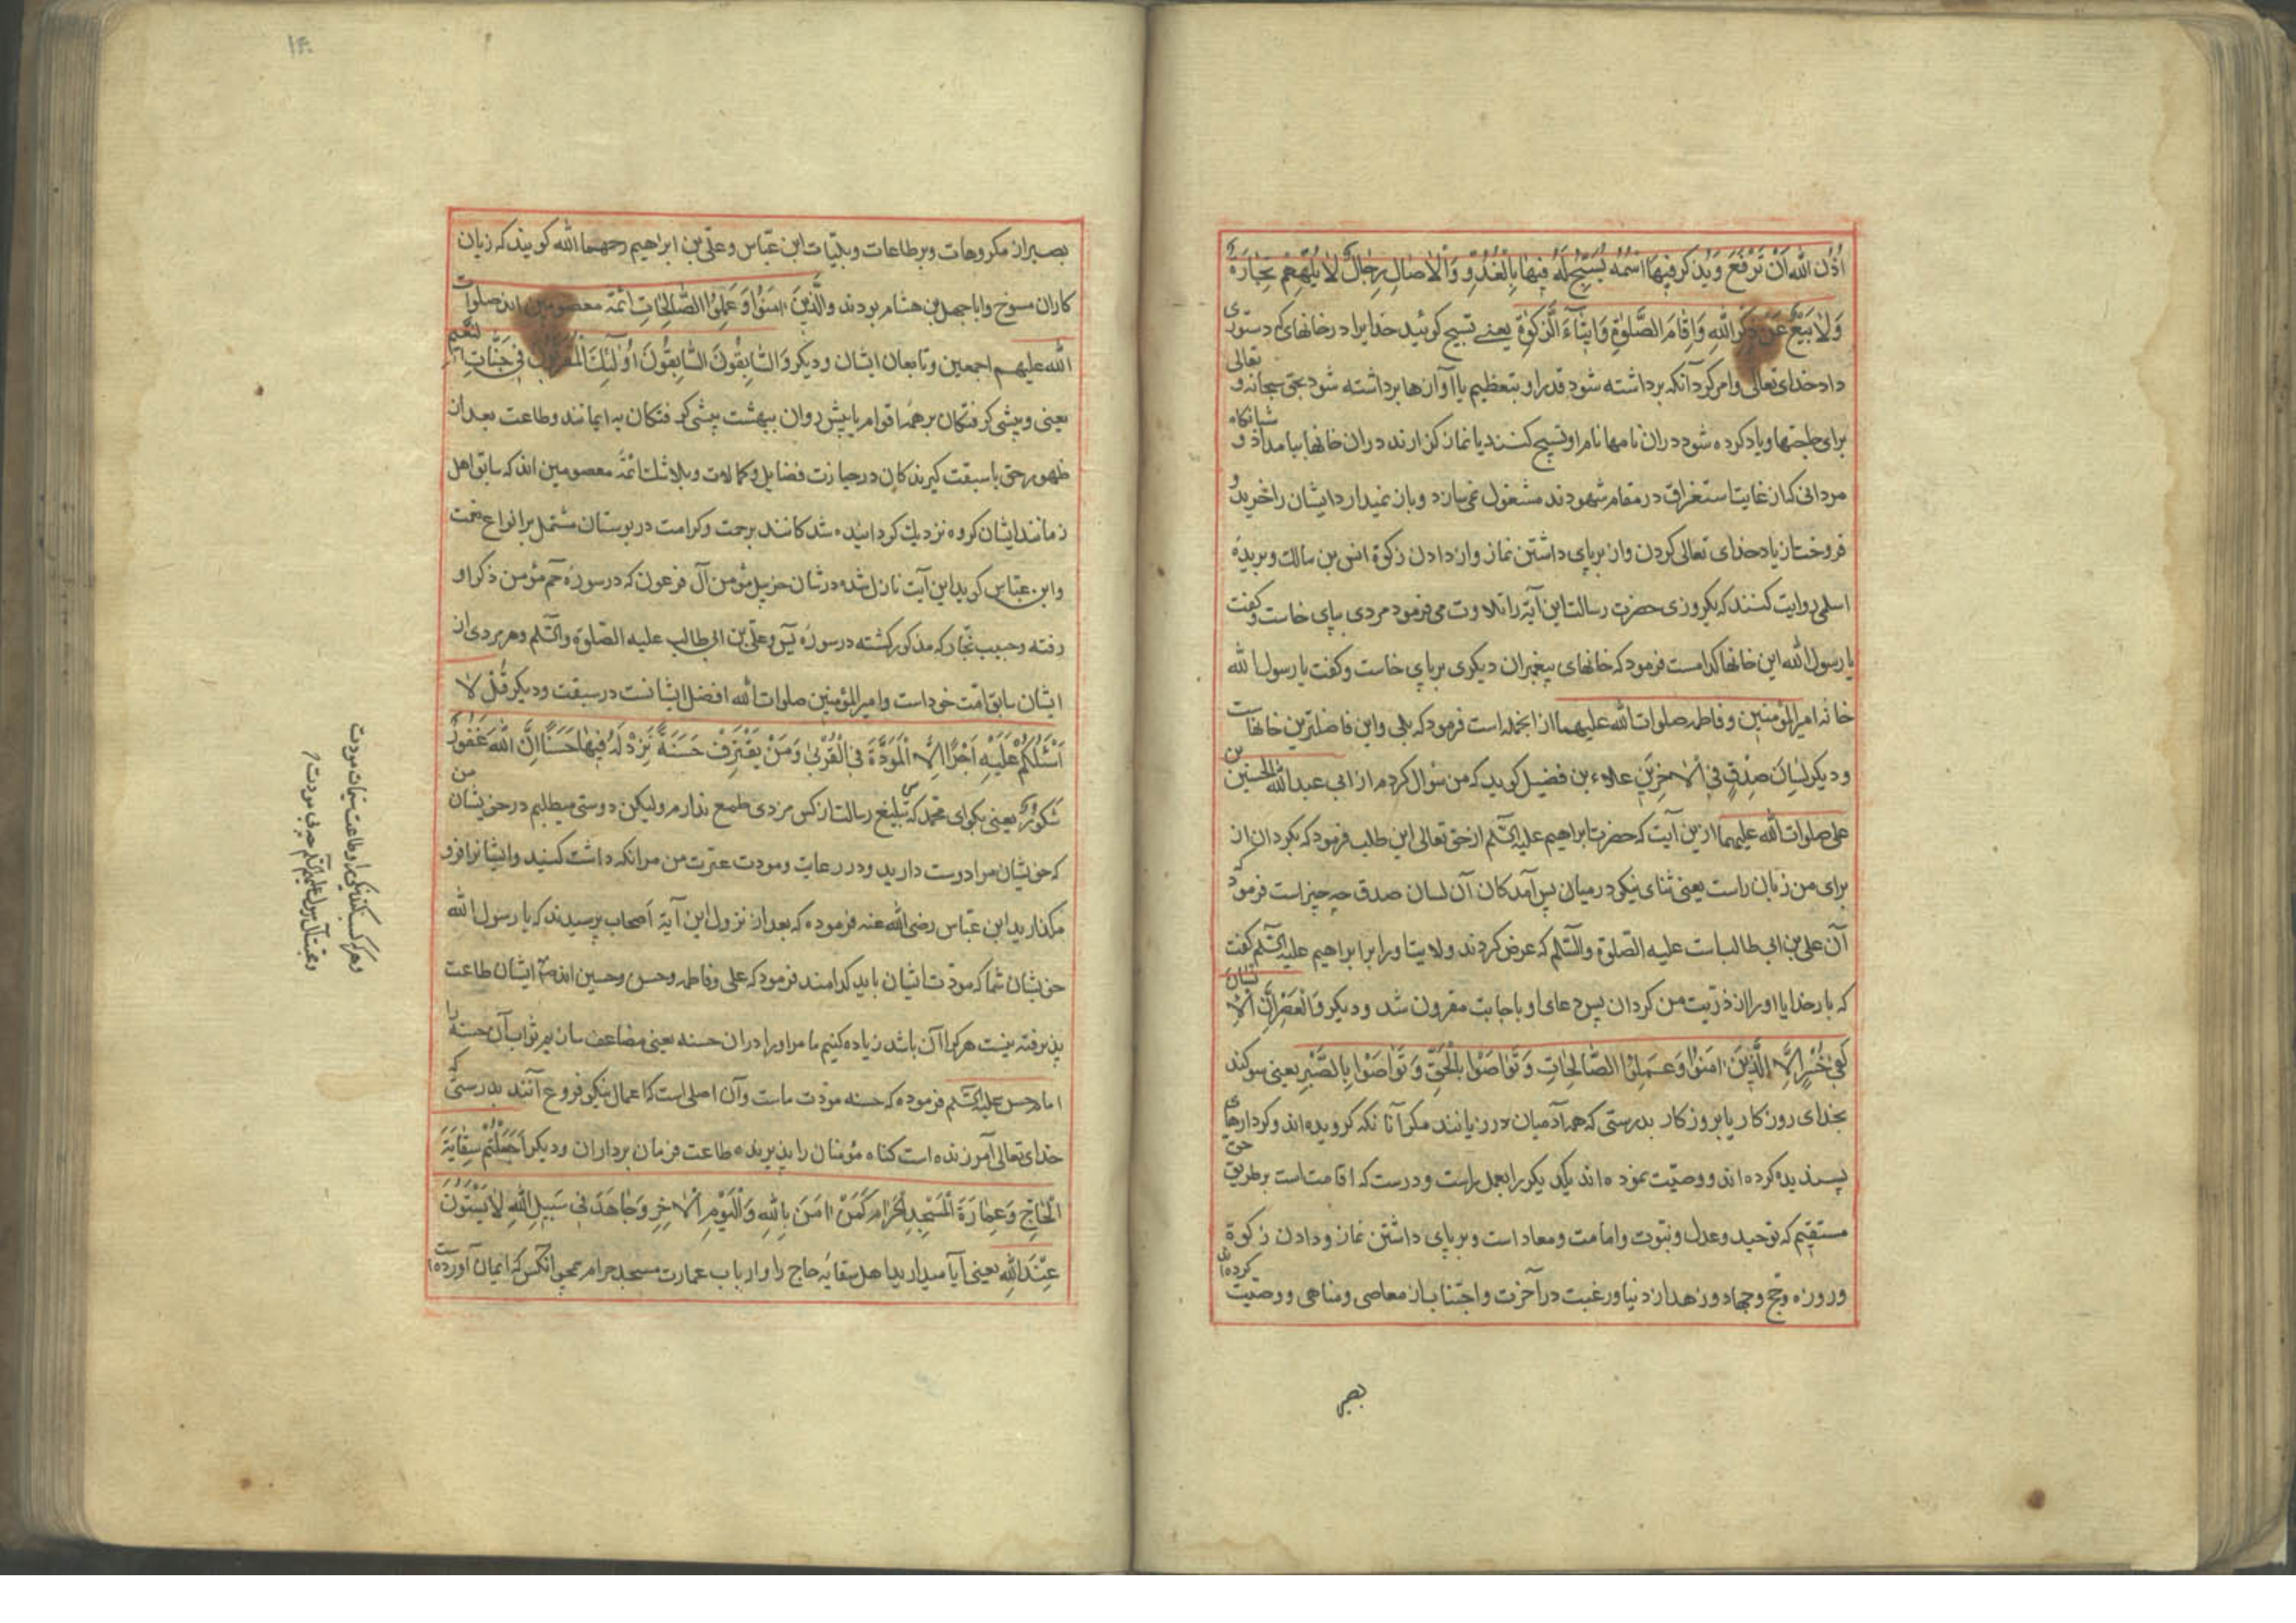 اَذِنَ اللّٰهُ اَنْ تُرْفَعَ وَيُذْكَرَ فِيهَا اسْمُهُ يُسَبِّحُ لَهُ فِيهَا بِالْغُدُوِّ وَالْاٰصَالِ رِجَالٌ لَا تُلْهِيهِمْ تِجَارَةٌ
وَلَا بَيْعٌ عَنْ ذِكْرِ اللّٰهِ وَاِقَامَ الصَّلٰوةِ وَاِيتَآءَ الزَّكٰوةِ یعنے تسبیح کوئید خدایرا در خانهای که دستوری
داد خدای تعالی وامر کرد آنکه برداشته شود قدر او بتعظیم یا آوازها برداشته شود بحق سبحانه و تعالی
برای حاجتها ویاد کرده شود دران نامها نام او تسبیح کنند یا نماز کزارند دران خانها بیامداد و شبانکاه
مردانی که از غایت استغراق در مقام شهودند مشغول نمی سازد و باز نمیدارد ایشان را خرید و
فروخت از یاد خدای تعالی کردن واز برپای داشتن نماز واز دادن زکوة انس بن مالک و بریدهٔ
اسلمی روایت کنند که یکروزی حضرت رسالت این آیة را تلاوت می فرمود مردی بپای خاست وکفت
یا رسول الله این خانها کدامست فرمود که خانهای پیغمبران دیکری برپای خاست وکفت یا رسول الله
خانه امیرالمؤمنین وفاطمه صلوات الله علیهما از انجمله است فرمود که بلی واین فاضلترین خانهاست
ودیکر لِسَانَ صِدْقٍ فِي الْاٰخِرِينَ علاء بن فضیل کوید که من سؤال کردم از ابی عبدالله الحسین بن
علی صلوات الله علیهما ازین آیت که حضرت ابراهیم علیه السّلم از حق تعالی این طلب فرمود که بکردان از
برای من زبان راست یعنی ثنای نیکو درمیان پس آمدکان آن لسان صدق چه چیز است فرمود که
آن علی بن ابی طالب است علیه الصلوة والسّلم که عرض کردند ولایت اورا بر ابراهیم علیه السّلم کفت
که بار خدایا اورا از ذرّیت من کردان پس دعای او باجابت مقرون شد ودیکر وَالْعَصْرِ اِنَّ الْاِنْسَانَ
لَفِي خُسْرٍ اِلَّا الَّذِينَ اٰمَنُوا وَعَمِلُوا الصَّالِحَاتِ وَتَوَاصَوْا بِالْحَقِّ وَتَوَاصَوْا بِالصَّبْرِ یعنی سوکند
بخدای روزکار یا بروزکار بدرستی که همه آدمیان در زیانند مکر آنانکه کرویده اند وکردارهای
پسندیده کرده اند ووصیّت نموده اند یکدیکر را بعمل راست ودرست که اقامت است برطریق حق
مستقیم که توحید وعدل ونبوت وامامت ومعاد است وبرپای داشتن نماز ودادن زکوة
وروزه وحج وجهاد وزهد از دنیا ورغبت در آخرت واجتناب از معاصی ومناهی ووصیّت کرده اند
بصبر
بصبر از مکروهات وبر طاعات وبلیّات ابن عبّاس وعلی بن ابراهیم رحمهما الله کویند که زیان
کاران مسوخ واباجهل بن هشام بودند وَالَّذِينَ اٰمَنُوا وَعَمِلُوا الصَّالِحَاتِ ائمّهٔ معصومین اند صلوات
الله علیهم اجمعین وتابعان ایشان ودیکر وَالسَّابِقُونَ السَّابِقُونَ اُولٰئِكَ الْمُقَرَّبُونَ فِي جَنَّاتِ النَّعِيمِ
یعنی وپیشی کرفتکان برهمهٔ اقوام یا پیش روان ببهشت پیشی کرفتکان به ایمانند وطاعت بعد از
ظهور حق یا سبقت کیرندکان در حیازت فضایل وکمالات وبلاشک ائمّهٔ معصومین اند که سابق اهل
زمانند ایشان کروه نزدیک کردانیده شدکانند برحمت وکرامت در بوستان مشتمل بر انواع نعمت
وابن عبّاس کوید این آیت نازل شده در شان حزبیل مؤمن آل فرعون که در سورهٔ حم مؤمن ذکر او
رفته وحبیب نجّار که مذکور کشته در سورهٔ یس وعلی بن ابی طالب علیه الصّلوة والسّلم وهر مردی از
ایشان سابق امّت خود است وامیرالمؤمنین صلوات الله افضل ایشانست در سبقت ودیکر قُلْ لَا
اَسْئَلُكُمْ عَلَيْهِ اَجْرًا اِلَّا الْمَوَدَّةَ فِي الْقُرْبٰى وَمَنْ يَقْتَرِفْ حَسَنَةً نَزِدْ لَهُ فِيهَا حُسْنًا اِنَّ اللّٰهَ غَفُورٌ
شَكُورٌ یعنی بکوای محمّد که بر تبلیغ رسالت از کس مزدی طمع ندارم ولیکن دوستی میطلبم در خویشان من
که خویشان مرا دوست دارید ودر رعایت ومودت عترت من مرا نکه داشت کنید وایشانرا فرو
مکذارید ابن عبّاس رضی الله عنه فرموده که بعد از نزول این آیة اصحاب پرسیدند که یا رسول الله
خویشان شما که مودّت ایشان باید کدامند فرمود که علی وفاطمه وحسن وحسین اند ایشان طاعت
پذیرفته نیست هرکرا آن باشد زیاده کنیم ما مر اورا دران حسنه یعنی مضاعف سازیم ثواب آن حسنه را
امام حسن علیه السّلم فرموده که حسنه مودّت ماست وآن اصلی است که اعمال نیکو فروع آنند بدرستی که
خدای تعالی آمرزنده است کناه مؤمنان را پذیرنده طاعت فرمان برداران ودیکر اَجَعَلْتُمْ سِقَايَةَ
الْحَاجِّ وَعِمَارَةَ الْمَسْجِدِ الْحَرَامِ كَمَنْ اٰمَنَ بِاللّٰهِ وَالْيَوْمِ الْاٰخِرِ وَجَاهَدَ فِي سَبِيلِ اللّٰهِ لَا يَسْتَوُونَ
عِنْدَ اللّٰهِ یعنی آیا میدارید اهل سقایهٔ حاج را وارباب عمارت مسجد حرام همچو آنکس که ایمان آورده است
وهرکه کسب کند نیکی را وطاعت مودت